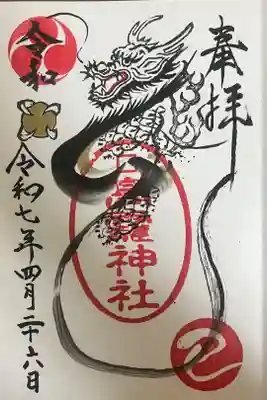 奉拝
神社
令和
令和七年四月二十六日